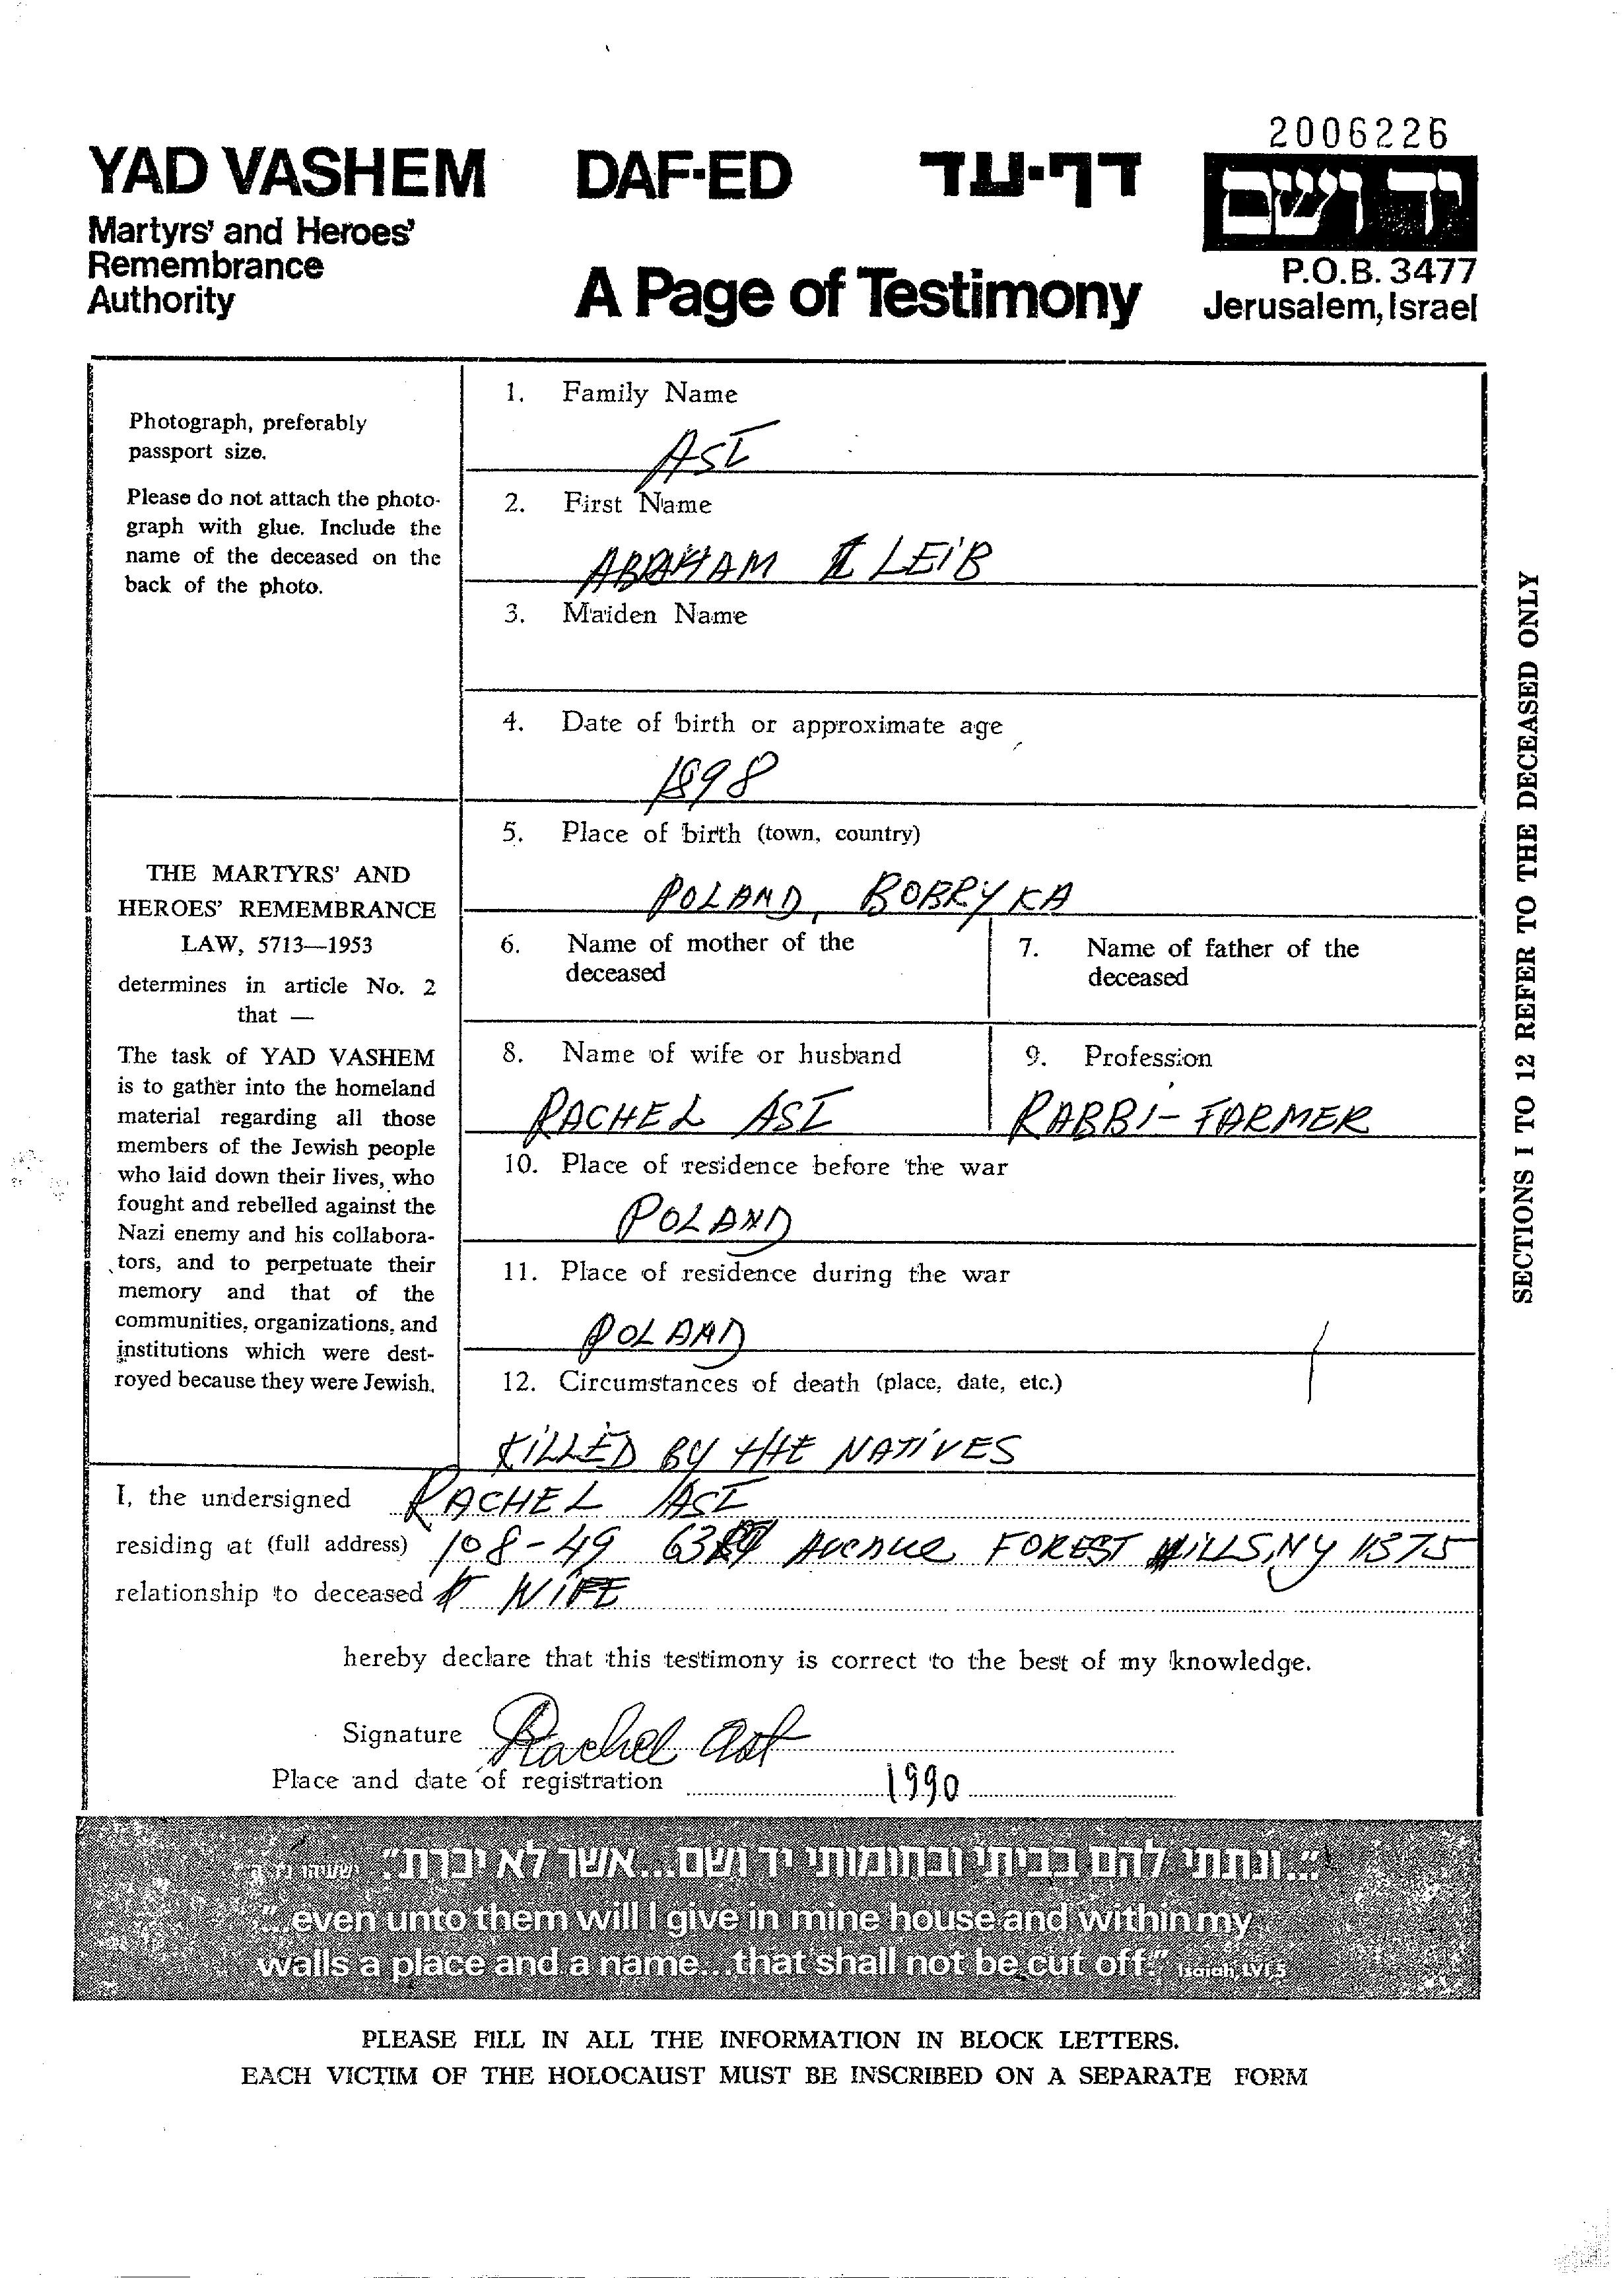 2006226
YAD VASHEM DAF-ED דף-עד
יד ושם
Martyrs' and Heroes'
Remembrance
Authority
A Page of Testimony
P.O.B. 3477
Jerusalem, Israel
Photograph, preferably
passport size.
Please do not attach the photo-
graph with glue. Include the
name of the deceased on the
back of the photo.
THE MARTYRS' AND
HEROES' REMEMBRANCE
LAW, 5713—1953
determines in article No. 2
that —
The task of YAD VASHEM
is to gather into the homeland
material regarding all those
members of the Jewish people
who laid down their lives, who
fought and rebelled against the
Nazi enemy and his collabora-
tors, and to perpetuate their
memory and that of the
communities, organizations, and
institutions which were dest-
royed because they were Jewish.
1. Family Name
AST
2. First Name
ABRAHAM LEIB
3. Maiden Name
4. Date of birth or approximate age
1898
5. Place of birth (town, country)
POLAND, BOBRYKA
6. Name of mother of the
deceased
7. Name of father of the
deceased
8. Name of wife or husband
RACHEL AST
9. Profession
RABBI-FARMER
10. Place of residence before the war
POLAND
11. Place of residence during the war
POLAND
12. Circumstances of death (place, date, etc.)
KILLED BY THE NATIVES
SECTIONS 1 TO 12 REFER TO THE DECEASED ONLY
I, the undersigned RACHEL AST
residing at (full address) 108-49 63RD Avenue FOREST HILLS, NY 11375
relationship to deceased WIFE
hereby declare that this testimony is correct to the best of my knowledge.
Signature Rachel Ast
Place and date of registration 1990
"...ונתתי להם בביתי ובחומותי יד ושם...אשר לא יכרת" ישעיהו נו, ה'
"...even unto them will I give in mine house and within my
walls a place and a name...that shall not be cut off." Isaiah, LVI,5
PLEASE FILL IN ALL THE INFORMATION IN BLOCK LETTERS.
EACH VICTIM OF THE HOLOCAUST MUST BE INSCRIBED ON A SEPARATE FORM